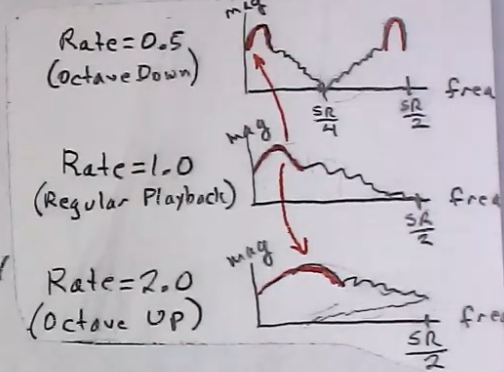 Rate=0.5
(Octave Down)
mag
SR/4
SR/2
freq
Rate=1.0
(Regular Playback)
mag
SR/2
freq
Rate=2.0
(Octave Up)
mag
SR/2
freq